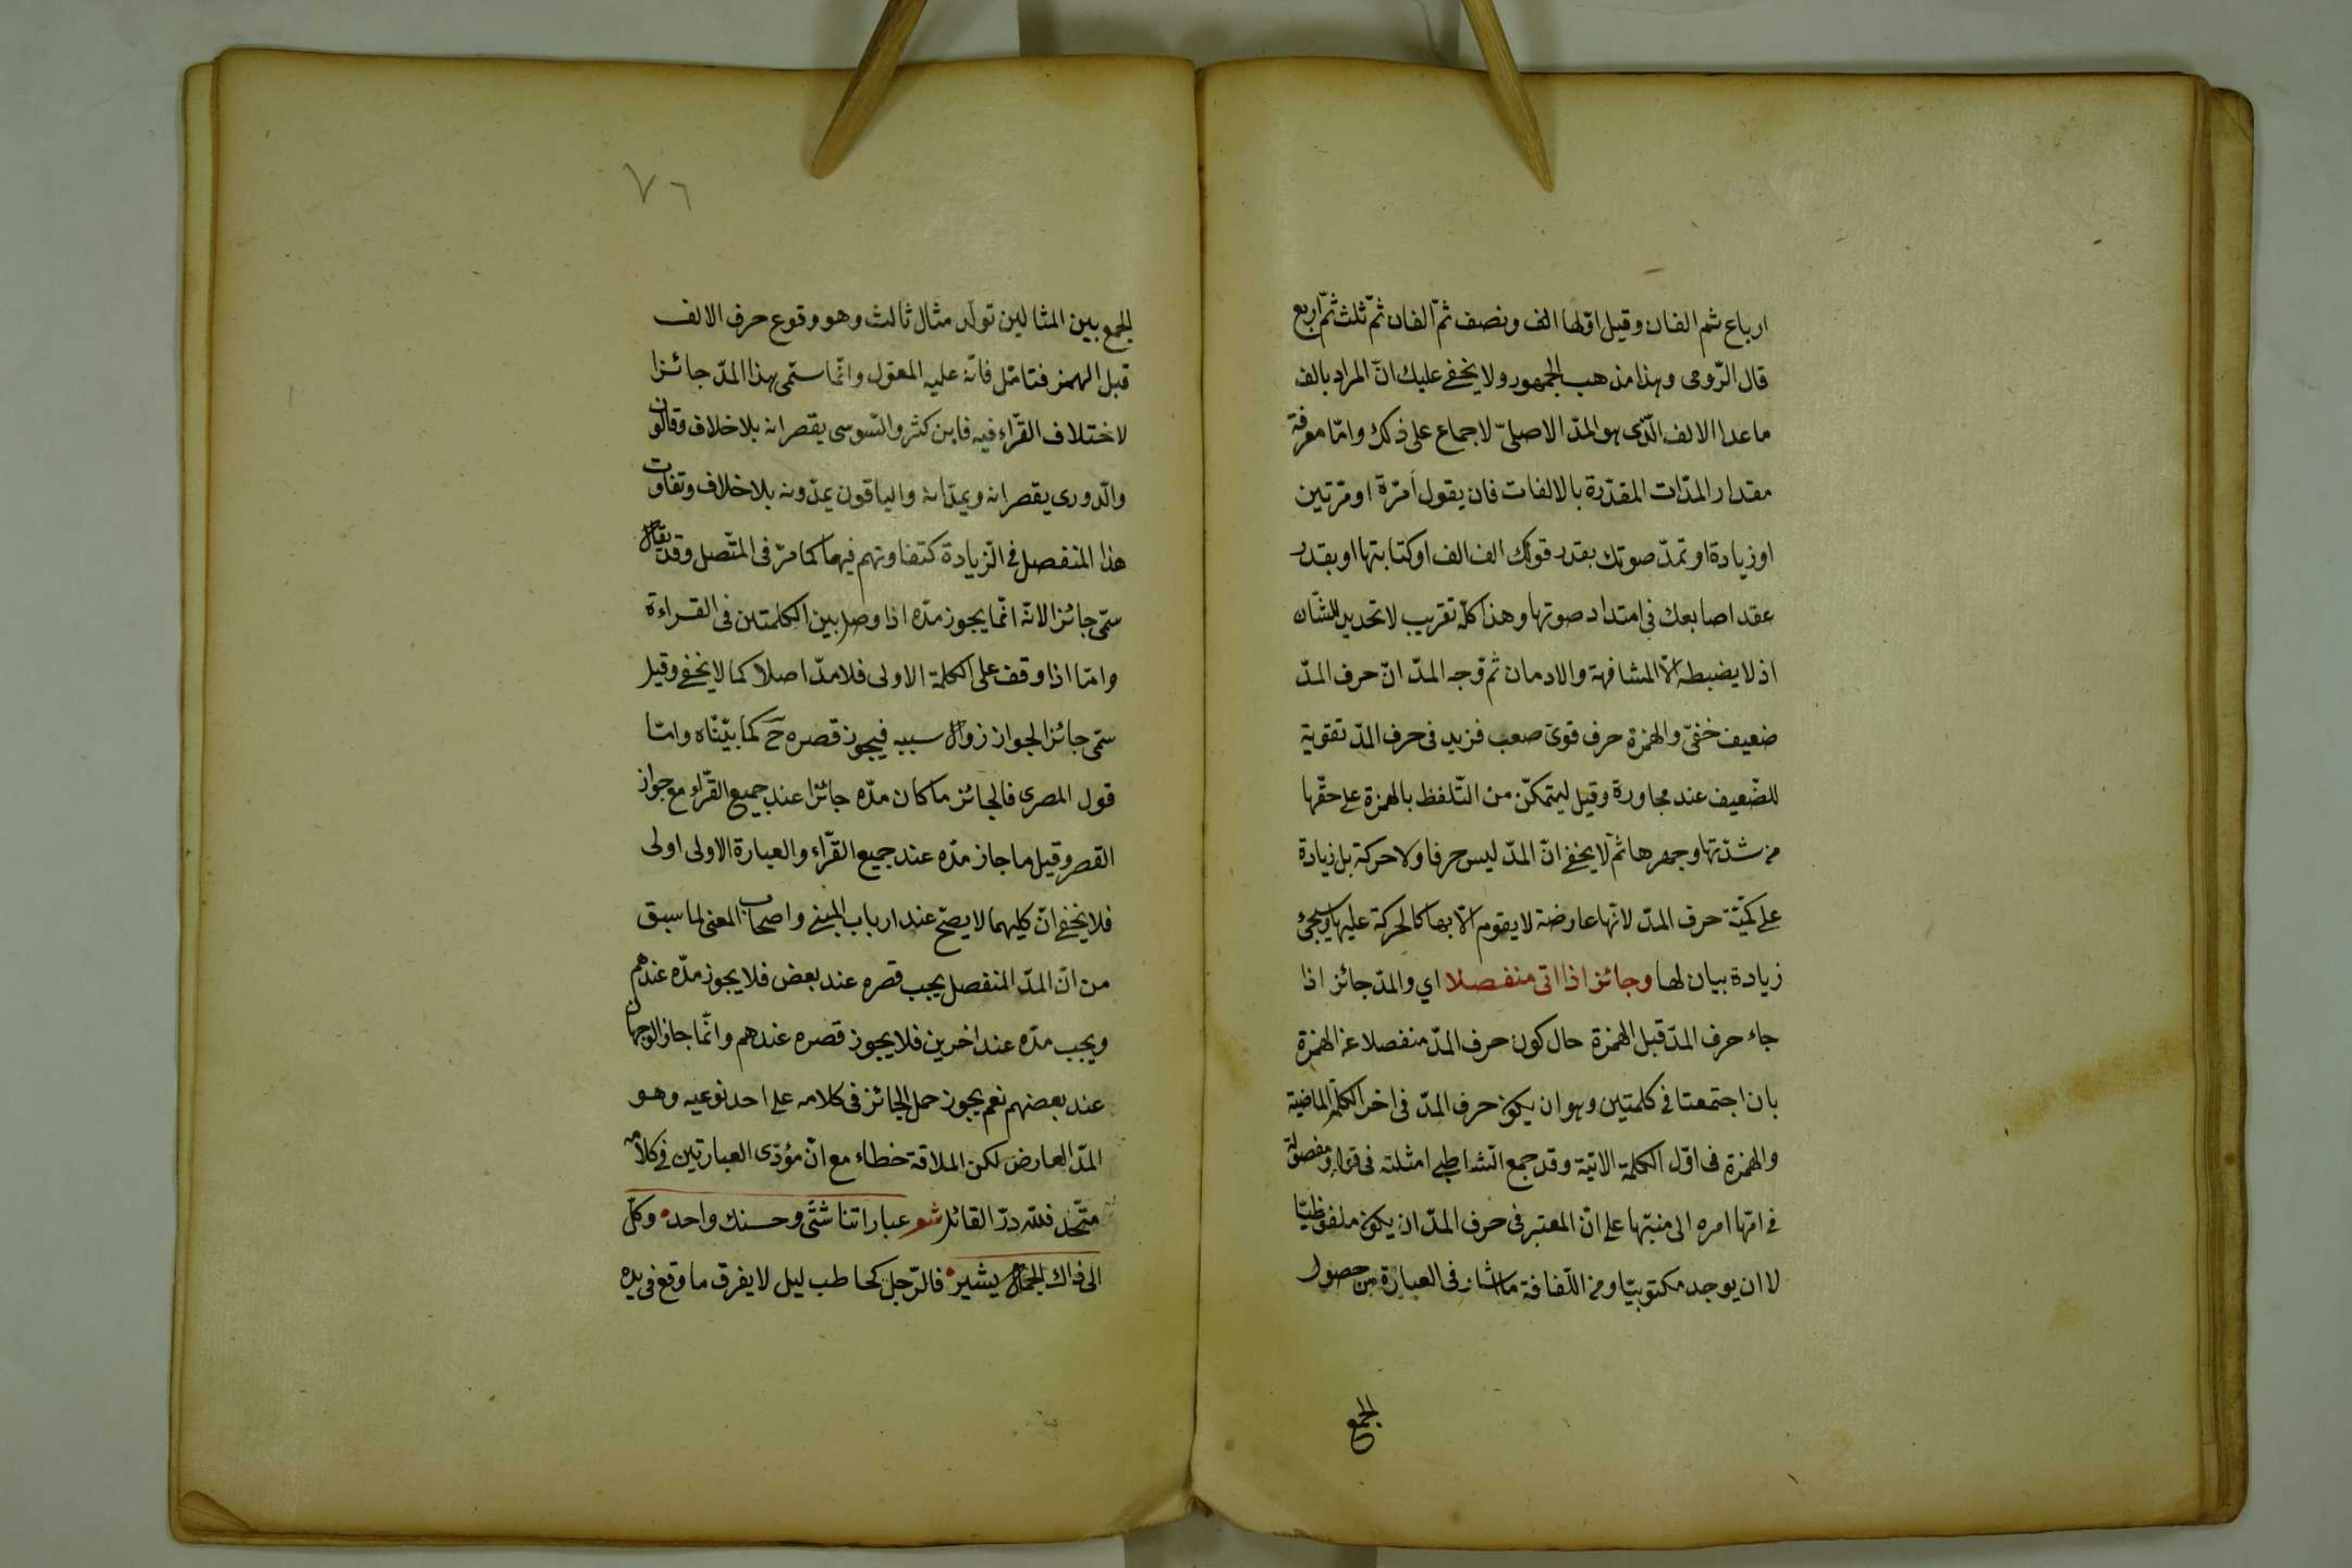 ارباع ثم الفان وقيل اوّلها الف ونصف ثمّ الفان ثمّ ثلث ثمّ اربع
قال الرّومى وهذا مذهب الجمهور ولا يخفى عليك انّ المراد بالف
ما عدا الالف الّذى هو المدّ الاصلىّ لاجماع على ذلك وامّا معرفة
مقدار المدّات المقدّرة بالالفات فان يقول أمرّة او مرّتين
او زيادة او تمدّ صوتك بقدر قولك الف الف او كتابتها او بقدر
عقد اصابعك فى امتداد صوتها وهذا كلّه تقريب لا تحديد للشّان
اذ لا يضبطه الّا المشافهة والادمان ثمّ وّجه المدّ انّ حرف المدّ
ضعيف خفىّ والهمزة حرف قوىّ صعب فزيد فى حرف المدّ تقوية
للضّعيف عند مجاورة وقيل ليتمكّن من التّلفظ بالهمزة على حقّها
من شدّتها وجهرها ثمّ لا يخفى انّ المدّ ليس حرفا ولا حركة بل زيادة
على كمّيّة حرف المدّ لانّها عارضة لا يقوم الّا بها كالحركة عليها وسيجئ
زيادة بيان لها وجائز اذا اتى منفصلا اي والمدّ جائز اذا
جاء حرف المدّ قبل الهمزة حال كون حرف المدّ منفصلا عن الهمزة
بان اجتمعتا فى كلمتين وهو ان يكون حرف المدّ فى اخر الكلمة الماضية
والهمزة فى اوّل الكلمة الاتيّة وقد جمع الشّاطبى امثلته فى قوله ومفصوله
فى امّها امره الى منبّها على انّ المعتبر فى حرف المدّ ان يكون ملفوظيّا
لا ان يوجد مكتوبيّا ومن اللّفافة ما اشار فى العبارة من حصول
الجمع
٧٦
الجمع بين المثالين تولد مثال ثالث وهو وقوع حرف الالف
قبل الهمز فتامّل فانّه عليه المعوّل وانّما سمّى بهذا المدّ جائزا
لاختلاف القرّاء فيه فابن كثر والسّوسى يقصرانه بلا خلاف وقالون
والدّورى يقصرانه ويمدّانه والباقون يمدّونه بلا خلاف وتفاوت
هذا المنفصل فى الزّيادة كتفاوتهم فيها كما مرّ فى المتّصل وقد يقال
سمّى جائزا لانّه انّما يجوز مدّه اذا وصل بين الكلمتين فى القراءة
وامّا اذا وقف على الكلمة الاولى فلا مدّ اصلا كما لا يخفى وقيل
سمّى جائزا لجواز زوال سببه فيجوز قصره ح كما بيّنّاه وامّا
قول المصرى فالجائز ما كان مدّه جائزا عند جميع القرّاء مع جواز
القصر وقيل ما جاز مدّه عند جميع القرّاء والعبارة الاولى اولى
فلا يخفى انّ كليهما لا يصحّ عند ارباب المبنى واصحاب المعنى لما سبق
من انّ المدّ المنفصل يجب قصره عند بعض فلا يجوز مدّه عندهم
ويجب مدّه عند اخرين فلا يجوز قصره عندهم وانّما جاز الوجهان
عند بعضهم نعم يجوز حمل الجائز فى كلامه على احد نوعيه وهو
المدّ العارض لكن الملاقة خطاء مع انّ مؤدّى العبارتين فى كلامه
متّحد فللّه درّ القائل شعر عباراتنا شتّى وحسنك واحد وكلّ
الى ذاك الجمال يشير فالرّجل كحاطب ليل لا يفرق ما وقع فى يده